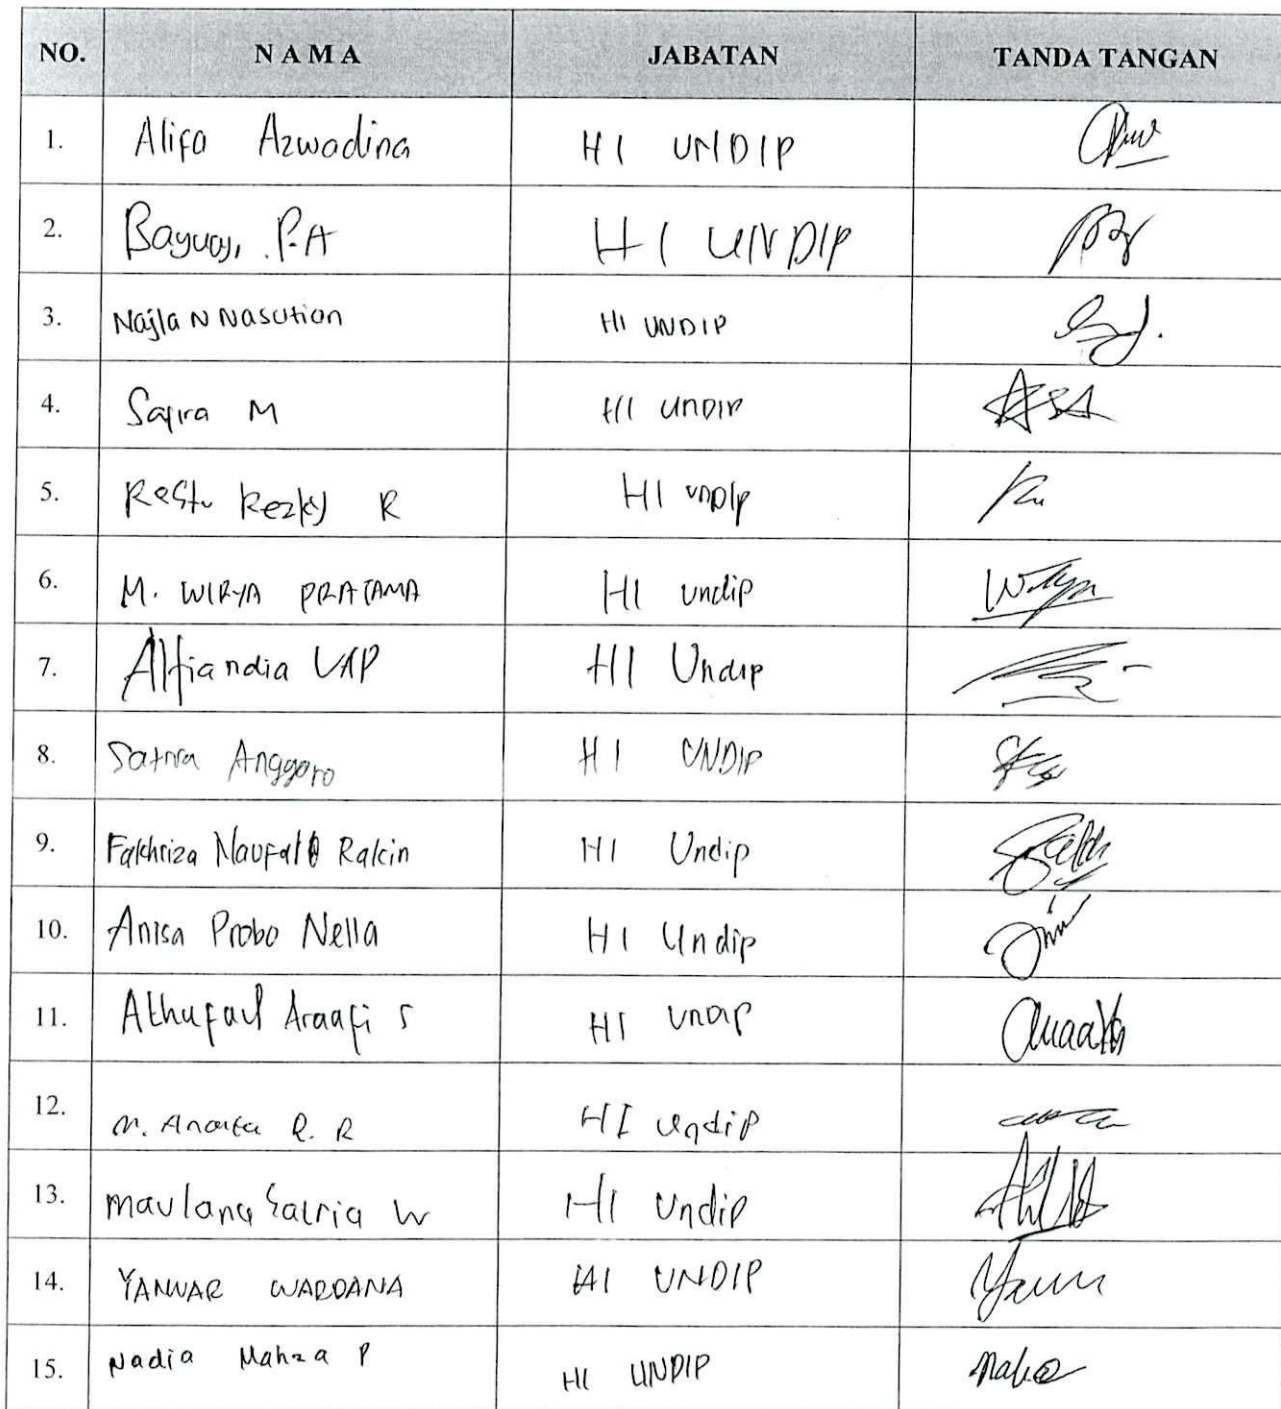 NO. NAMA JABATAN TANDA TANGAN
1. Alifa Azwadina HI UNDIP
2. Bayuaji, P.A HI UNDIP
3. Najla N Nasution HI UNDIP
4. Safira M HI UNDIP
5. Restu Rezky R HI UNDIP
6. M. WIRYA PRATAMA HI undip
7. Alfiandia VAP HI Undip
8. Satria Anggoro HI UNDIP
9. Fakhriza Naufal Rakin HI Undip
10. Anisa Probo Nella HI Undip
11. Athufail Araafi S HI UNDIP
12. M. R. R HI Undip
13. Maulana Satria W HI Undip
14. YANUAR WARDANA HI UNDIP
15. Nadia Mahza P HI UNDIP